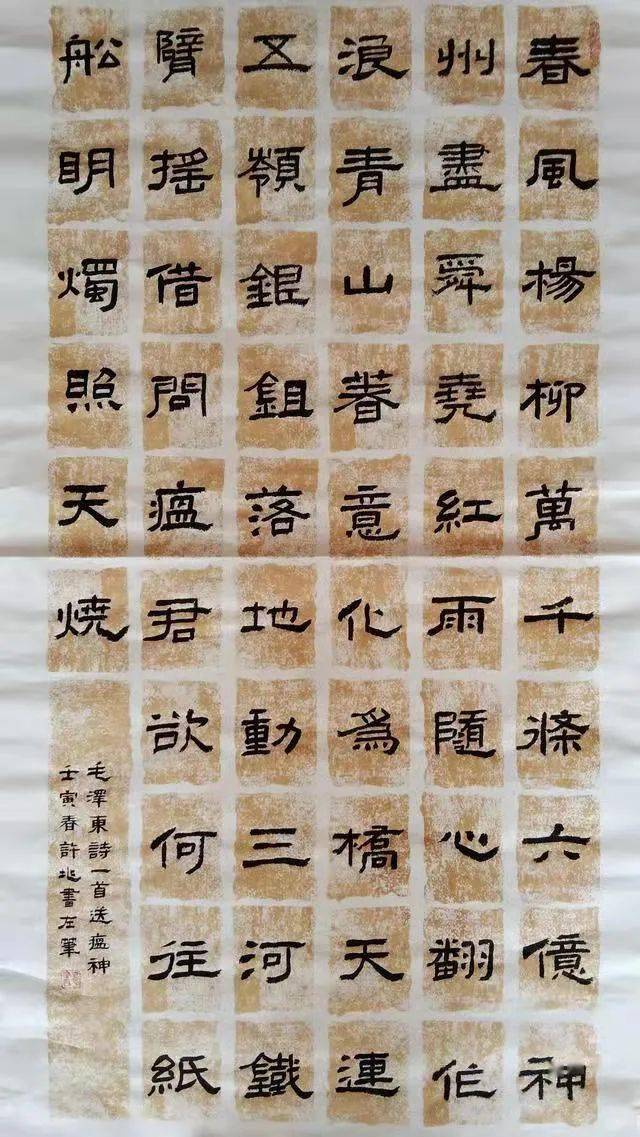 春風楊柳萬千條六億神
州盡舜堯紅雨隨心翻作
浪青山著意化爲橋天連
五嶺銀鉏落地動三河鐵
臂摇借問瘟君欲何往紙
船眀燭照天燒
毛澤東詩一首送瘟神
壬寅春許兆書左筆